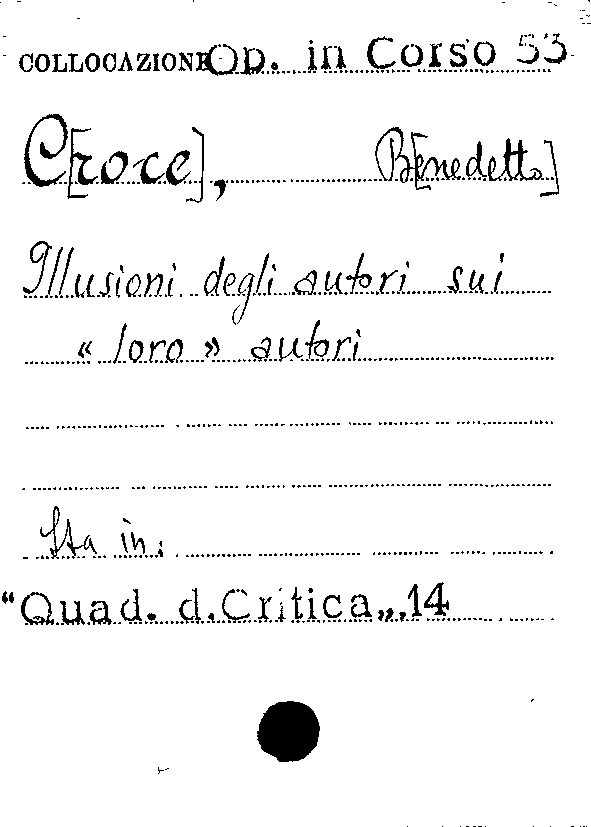 COLLOCAZIONE Op. in Corso 53
C[roce], B[enedetto]
Illusioni degli autori sui
« loro » autori
Sta in:
“Quad. d. Critica„, 14